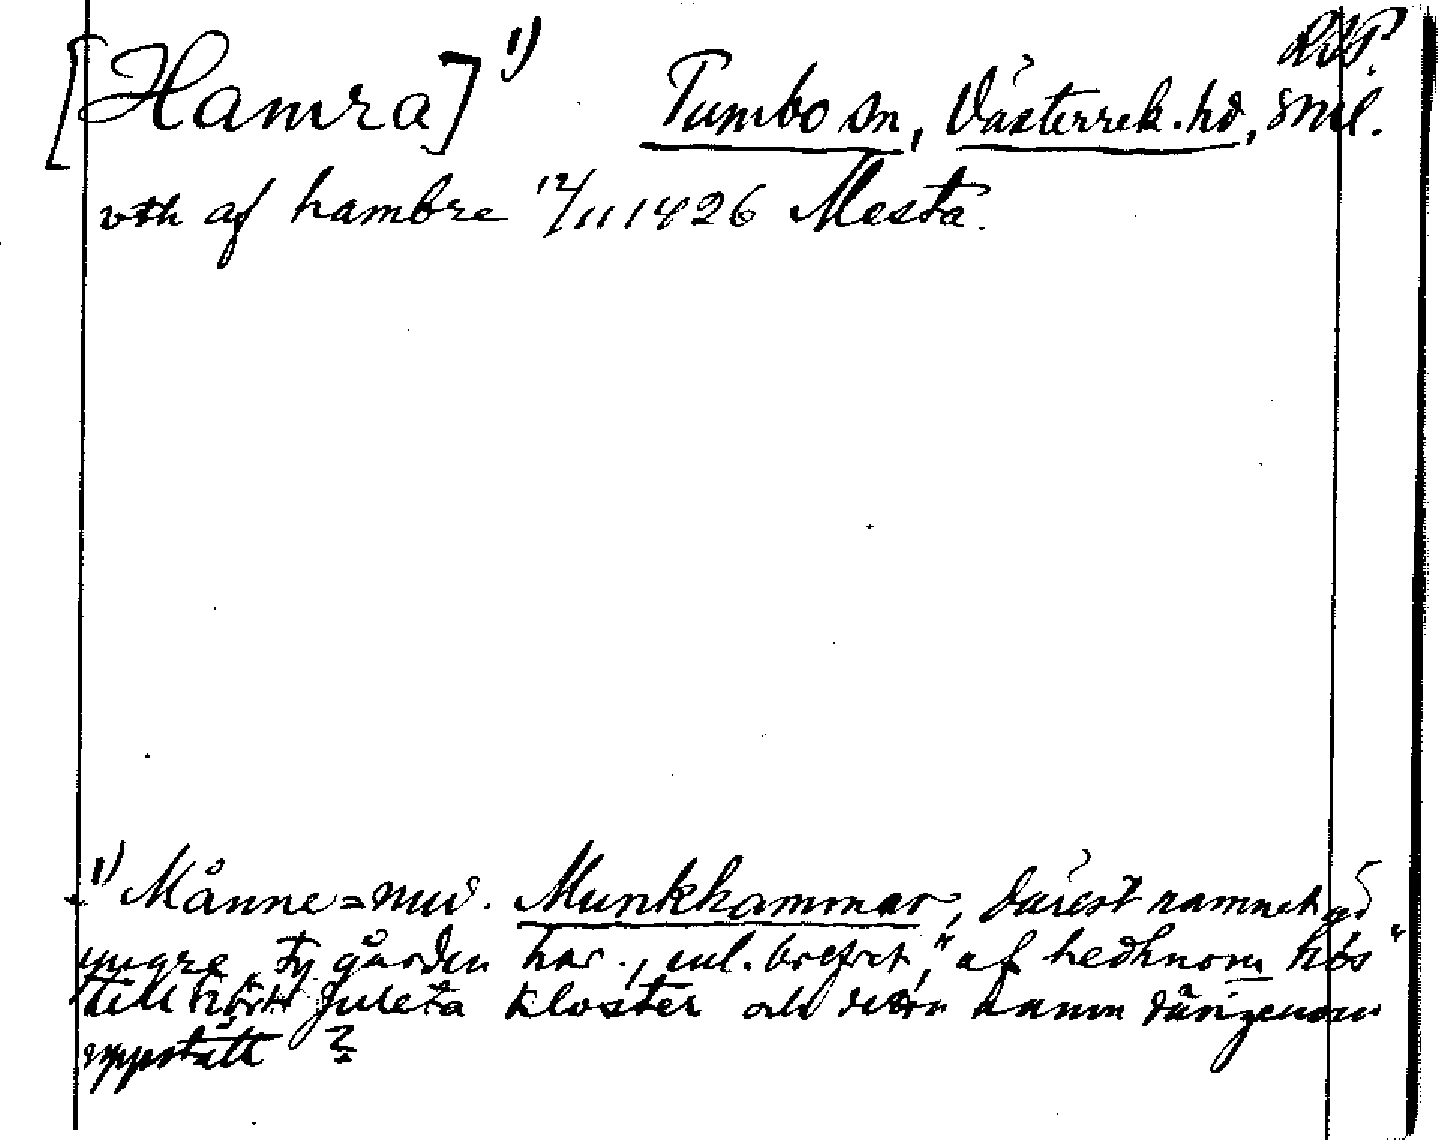 [Hamra] 1) Tumbo sn, Västerrek. hd, Sml.
vth af hambre 12/11 1426 Mesta.
1) Månne = nuv. Munkhammar, därest namnet är
yngre, ty gården har, enl. brefvet, "af hedhnom hös"
tillhört Juleta kloster och detta namn därigenom
uppstått ?